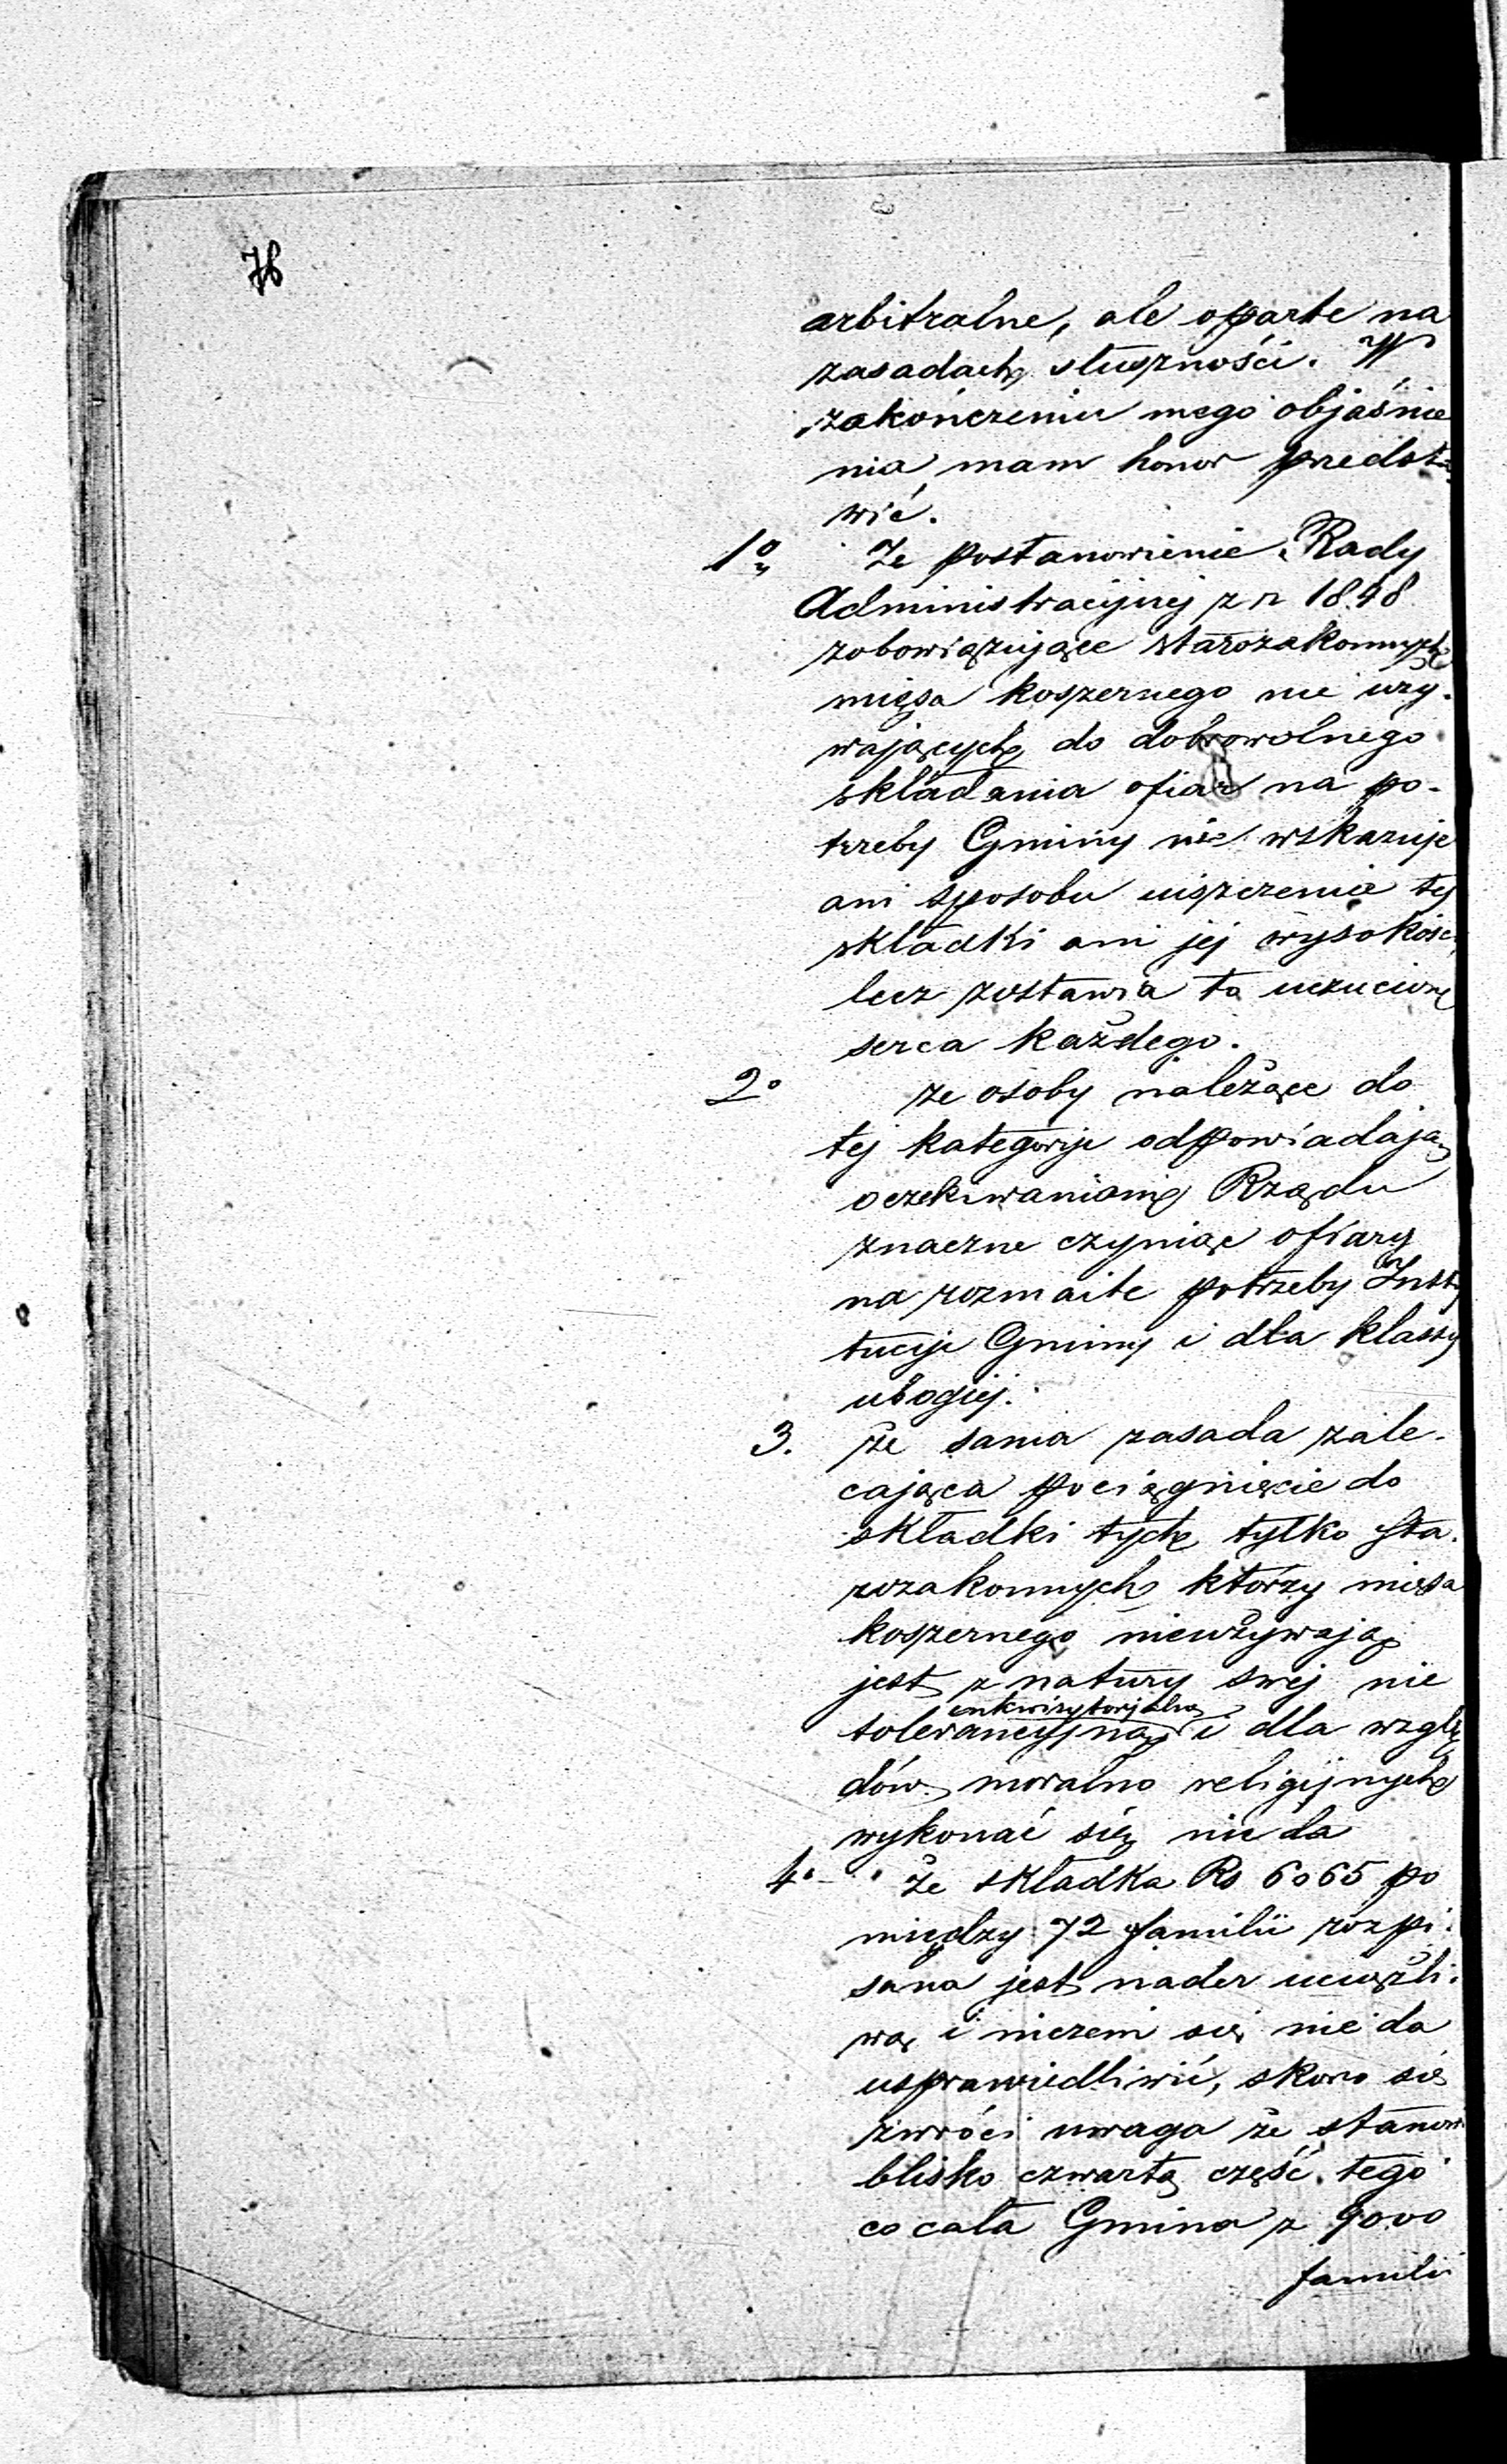 76
arbitralne, ale oparte na
zasadach słuszności. W
zakończeniu mego objaśnie
nia mam honor przedsta
wić.
1o Że postanowienie Rady
Administracyjnej z r 1848
zobowiązujące starozakonnych
mięsa koszernego nie uży-
wających do dobrowolnego
składania ofiar na po-
trzeby Gminy nie wskazuje
ani sposobu uiszczenia tej
składki ani jej wysokości
lecz zostawia to uczuciom
serca każdego.
2o że osoby należące do
tej kategoryi odpowiadają
oczekiwaniom Rządu
znaczne czyniąc ofiary
na rozmaite potrzeby Insty
tucyi Gminy i dla klassy
ubogiej.
3. że sama zasada zale-
cająca pociągnięcie do
składki tych tylko sta-
rozakonnych którzy mięsa
koszernego nieużywają
jest z natury swej nie
inkwizytorjalną
tolerancyjną i dla wzglę
dów moralno religijnych
wykonać się nie da
4o- Że składka Rs 6065 po
między 72 familii rozpi-
sana jest nader uciążli-
wą i niczem się nie da
usprawiedliwić, skoro się
zwróci uwaga że stanowi
blisko czwartą część tego
co cała Gmina z 9000
familii